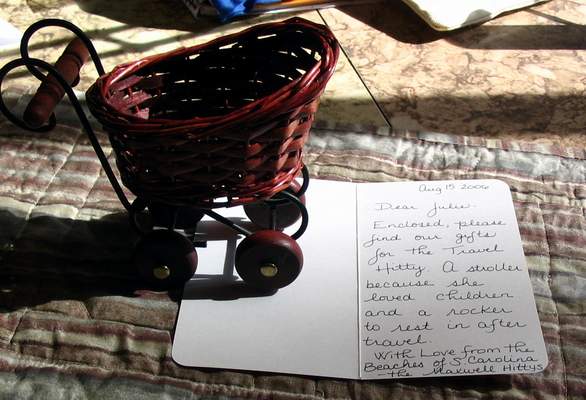 Aug 15 2006
Dear Julie -
Enclosed, please
find our gifts
for the Travel
Hitty. A stroller
because she
loved children
and a rocker
to rest in after
travel.
With Love from the
Beaches of S. Carolina
- the Maxwell Hittys